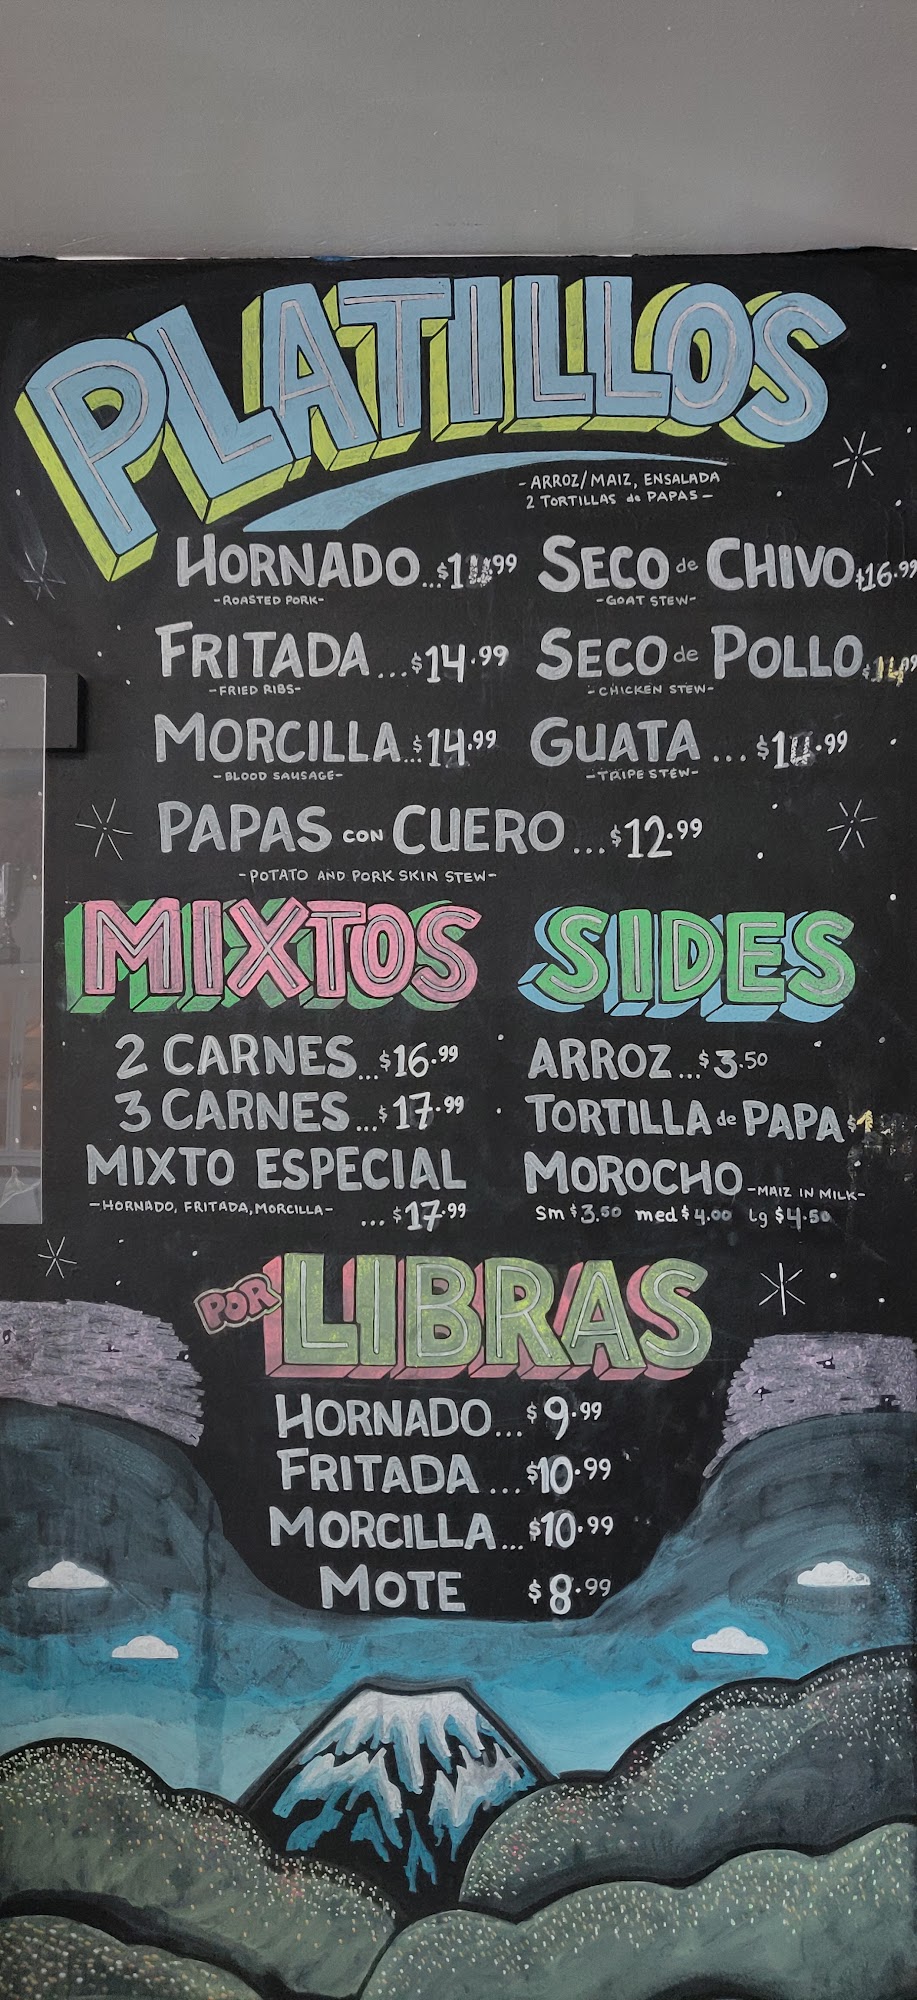 PLATILLOS
- ARROZ/MAIZ, ENSALADA
2 TORTILLAS de PAPAS -
HORNADO
-ROASTED PORK-
SECO de CHIVO $16.99
-GOAT STEW-
FRITADA ... $14.99
-FRIED RIBS-
SECO de POLLO
-CHICKEN STEW-
MORCILLA... $14.99
-BLOOD SAUSAGE-
GUATA ...
-TRIPE STEW-
PAPAS CON CUERO ... $12.99
-POTATO AND PORK SKIN STEW-
MIXTOS
2 CARNES... $16.99
3 CARNES... $17.99
MIXTO ESPECIAL
-HORNADO, FRITADA, MORCILLA-
... $17.99
SIDES
ARROZ ... $3.50
TORTILLA de PAPA
MOROCHO -MAIZ IN MILK-
Sm $3.50 med $4.00 Lg $4.50
POR LIBRAS
HORNADO... $9.99
FRITADA ... $10.99
MORCILLA... $10.99
MOTE $8.99